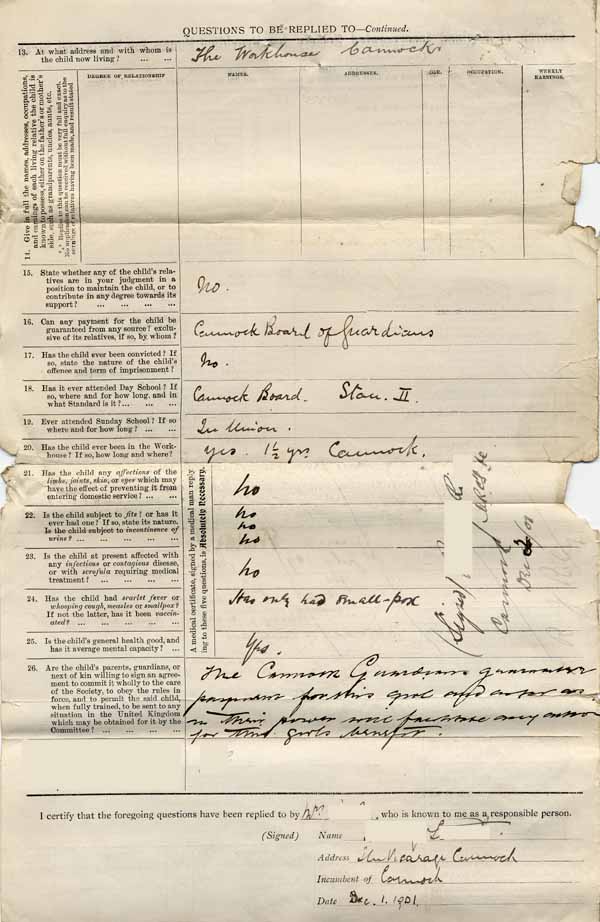 QUESTIONS TO BE REPLIED TO—Continued.
13. At what address and with whom is
the child now living? ... ...
The Workhouse Cannock
14. Give in full the names, addresses, occupations,
and earnings of each living relative the child is
known to possess, either on the father's or mother's
side, such as grandparents, uncles, aunts, etc.
*** Replies to this question must be very full and exact.
No application can be received without full enquiry as to the
earnings of relatives having been made, and result stated
DEGREE OF RELATIONSHIP
NAMES.
ADDRESSES.
AGE.
OCCUPATION.
WEEKLY
EARNINGS.
15. State whether any of the child's rela-
tives are in your judgment in a
position to maintain the child, or to
contribute in any degree towards its
support? ... ... ... ...
No.
16. Can any payment for the child be
guaranteed from any source? exclu-
sive of its relatives, if so, by whom?
Cannock Board of Guardians
17. Has the child ever been convicted? If
so, state the nature of the child's
offence and term of imprisonment?
No.
18. Has it ever attended Day School? If
so, where and for how long, and in
what Standard is it? ... ...
Cannock Board. Stan. II.
19. Ever attended Sunday School? If so
where and for how long? ... ...
In Union.
20. Has the child ever been in the Work-
house? If so, how long and where?
yes. 1½ yrs Cannock.
21. Has the child any affections of the
limbs, joints, skin, or eyes which may
have the effect of preventing it from
entering domestic service? ... ...
No
22. Is the child subject to fits? or has it
ever had one? If so, state its nature.
Is the child subject to incontinence of
urine? ... ... ... ...
No
No
No
23. Is the child at present affected with
any infectious or contagious disease,
or with scrofula requiring medical
treatment? ... ... ...
No
24. Has the child had scarlet fever or
whooping cough, measles or smallpox?
If not the latter, has it been vaccin-
ated? ... ... ... ...
Has only had small-pox
25. Is the child's general health good, and
has it average mental capacity? ...
Yes.
A medical certificate, signed by a medical man reply-
ing to these five questions, is Absolutely Necessary.
(Signed) R
Cannock
Dec 2/01
26. Are the child's parents, guardians, or
next of kin willing to sign an agree-
ment to commit it wholly to the care
of the Society, to obey the rules in
force, and to permit the said child,
when fully trained, to be sent to any
situation in the United Kingdom
which may be obtained for it by the
Committee? ... ... ... ...
The Cannock Guardians guarantee
payment for this girl and as far as
in their power will facilitate any action
for this girls benefit.
I certify that the foregoing questions have been replied to by Mr. , who is known to me as a responsible person.
(Signed) Name L
Address The Vicarage Cannock
Incumbent of Cannock
Date Dec. 1. 1901.